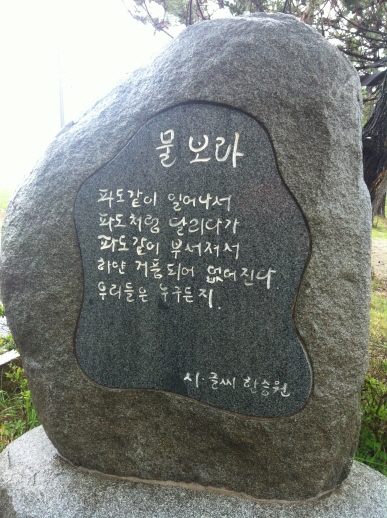 물 보라
파도같이 일어나서
파도처럼 달리다가
파도같이 부서져서
하얀 거품되어 없어진다
우리들은 누구든지.
시·글씨 한승원